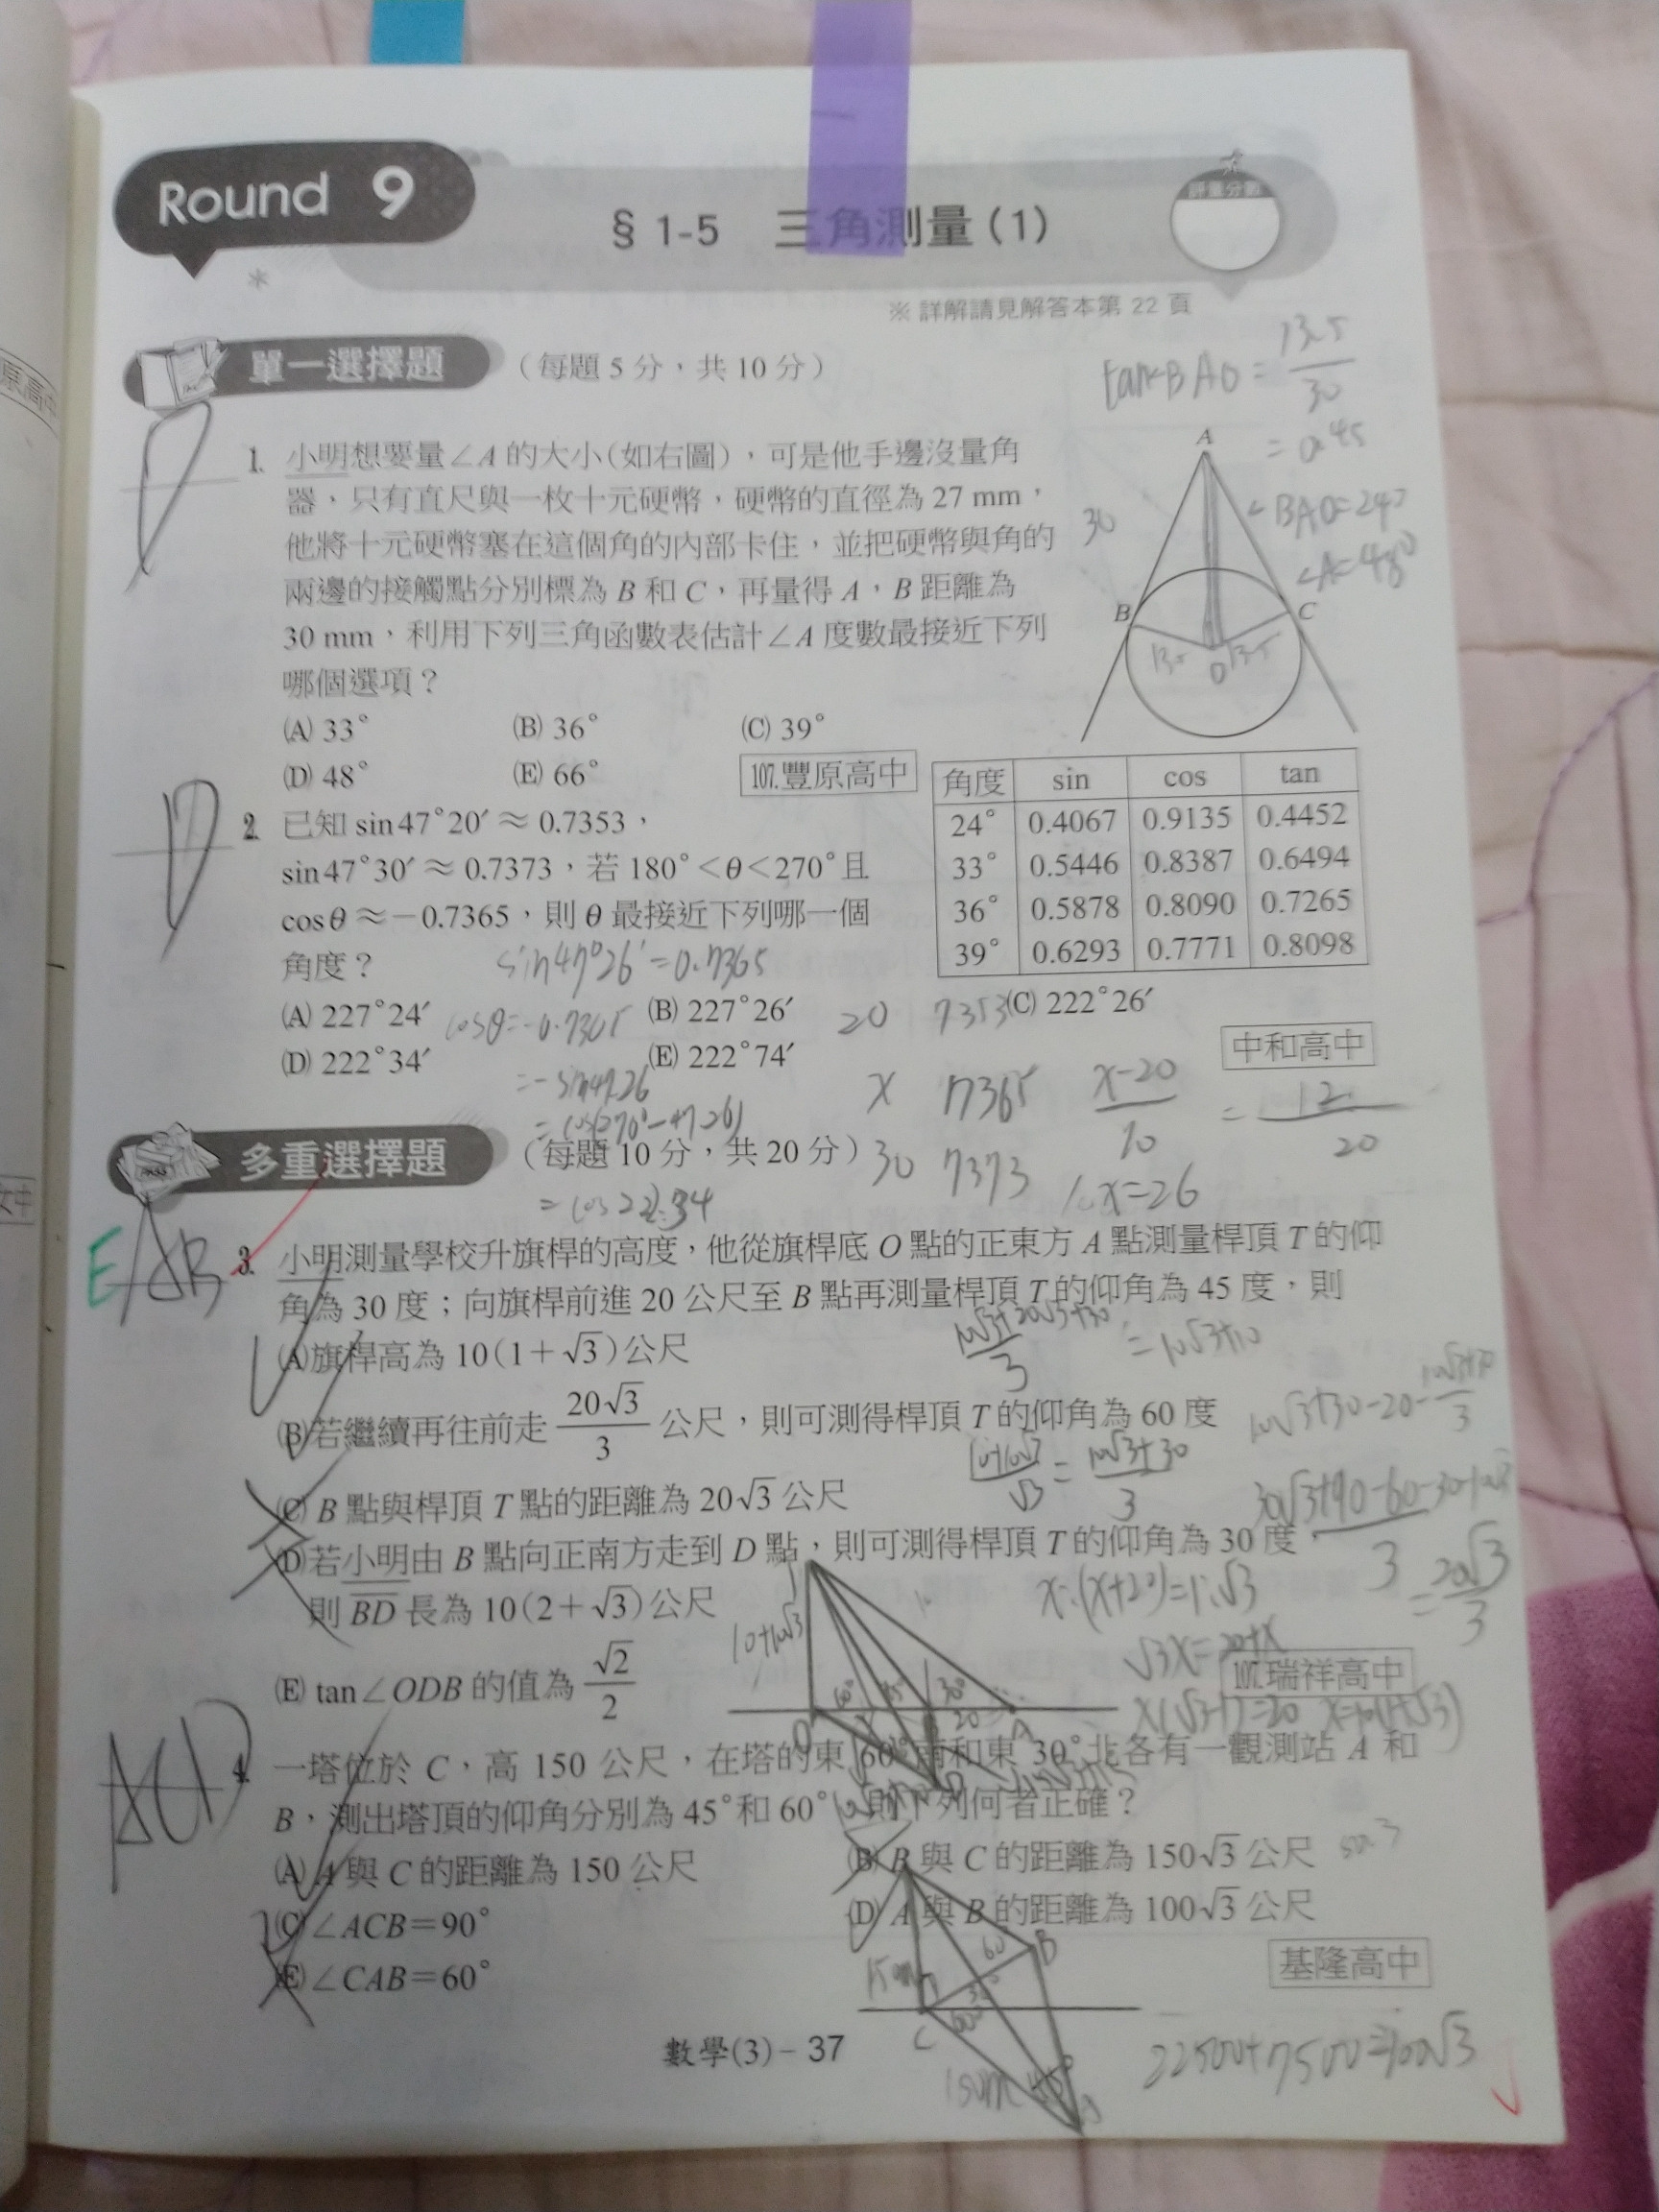 Round 9
§ 1-5 三角測量(1)
評量分數
※ 詳解請見解答本第 22 頁
單一選擇題 (每題 5 分,共 10 分)
tan∠BAO = 13.5/30
= 0.45
∠BAO=24°
∠A=48°
1. 小明想要量∠A 的大小(如右圖),可是他手邊沒量角
器,只有直尺與一枚十元硬幣,硬幣的直徑為 27 mm,
他將十元硬幣塞在這個角的內部卡住,並把硬幣與角的
兩邊的接觸點分別標為 B 和 C,再量得 A,B 距離為
30 mm,利用下列三角函數表估計∠A 度數最接近下列
哪個選項?
(A) 33° (B) 36° (C) 39°
(D) 48° (E) 66° 107.豐原高中
A
30
B
C
13.5
O
13.5
角度 sin cos tan
24° 0.4067 0.9135 0.4452
33° 0.5446 0.8387 0.6494
36° 0.5878 0.8090 0.7265
39° 0.6293 0.7771 0.8098
D
D
2. 已知 sin47°20′≈0.7353,
sin47°30′≈0.7373,若 180°<θ<270°且
cosθ≈−0.7365,則 θ 最接近下列哪一個
角度?
sin47°26′=0.7365
(A) 227°24′ (B) 227°26′ (C) 222°26′
(D) 222°34′ (E) 222°74′ 中和高中
20 7353
x 7365
30 7373
x-20/10 = 12/20
x=26
多重選擇題 (每題 10 分,共 20 分)
E AB
3. 小明測量學校升旗桿的高度,他從旗桿底 O 點的正東方 A 點測量桿頂 T 的仰
角為 30 度;向旗桿前進 20 公尺至 B 點再測量桿頂 T 的仰角為 45 度,則
(A)旗桿高為 10(1+√3)公尺
(B)若繼續再往前走 20√3/3 公尺,則可測得桿頂 T 的仰角為 60 度
(C) B 點與桿頂 T 點的距離為 20√3 公尺
(D)若小明由 B 點向正南方走到 D 點,則可測得桿頂 T 的仰角為 30 度
則 BD 長為 10(2+√3)公尺
(E) tan∠ODB 的值為 √2/2
107.瑞祥高中
=10√3+10
= 20√3/3
x:(x+20)=1:√3
√3x=20+x
x(√3-1)=20 x=10(1+√3)
10+10√3
ACD
4. 一塔位於 C,高 150 公尺,在塔的東 60°南和東 30°北各有一觀測站 A 和
B,測出塔頂的仰角分別為 45°和 60°,則下列何者正確?
(A) A 與 C 的距離為 150 公尺 (B) B 與 C 的距離為 150√3 公尺
(C) ∠ACB=90° (D) A 與 B 的距離為 100√3 公尺
(E) ∠CAB=60° 基隆高中
60
B
C
22500+7500=100√3
數學(3)-37